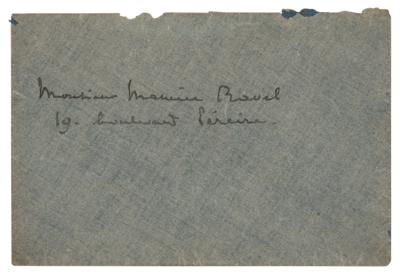 Monsieur Maurice Ravel
19. boulevard Péreire.